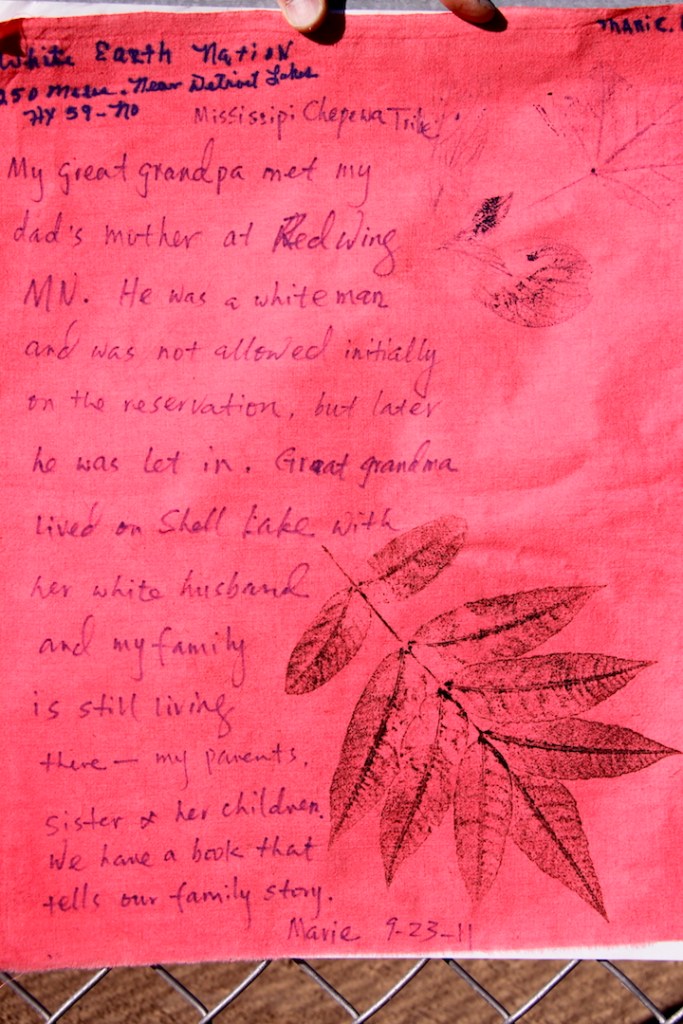 White Earth Nation
Marie.
250 miles. Near Detroit Lakes
Hy 59-No
Mississipi Chepewa Tribe
My great grandpa met my
dad's mother at Red Wing
MN. He was a white man
and was not allowed initially
on the reservation, but later
he was let in. Great grandma
lived on Shell Lake with
her white husband
and my family
is still living
there — my parents,
sister & her children.
We have a book that
tells our family story.
Marie 9-23-11